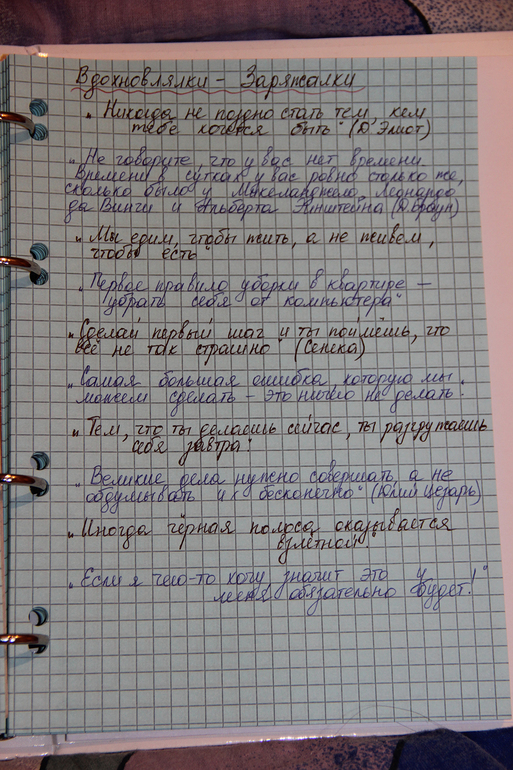 Вдохновлялки - Заряжалки
„Никогда не поздно стать тем, кем
тебе хочется быть" (Д. Элиот)
„Не говорите, что у вас нет времени.
Времени в сутках у вас ровно столько же,
сколько было у Микеланджело, Леонардо
да Винчи и Альберта Эйнштейна (Д. Браун)
„Мы едим, чтобы жить, а не живём,
чтобы есть"
„Первое правило уборки в квартире –
убрать себя от компьютера"
„Сделай первый шаг и ты поймёшь, что
всё не так страшно" (Сенека)
„Самая большая ошибка, которую мы
можем сделать – это ничего не делать."
„Тем, что ты делаешь сейчас, ты разгружаешь
себя завтра."
„Великие дела нужно совершать, а не
обдумывать их бесконечно" (Юлий Цезарь)
„Иногда чёрная полоса оказывается
взлётной."
„Если я чего-то хочу, значит это у
меня обязательно будет!"